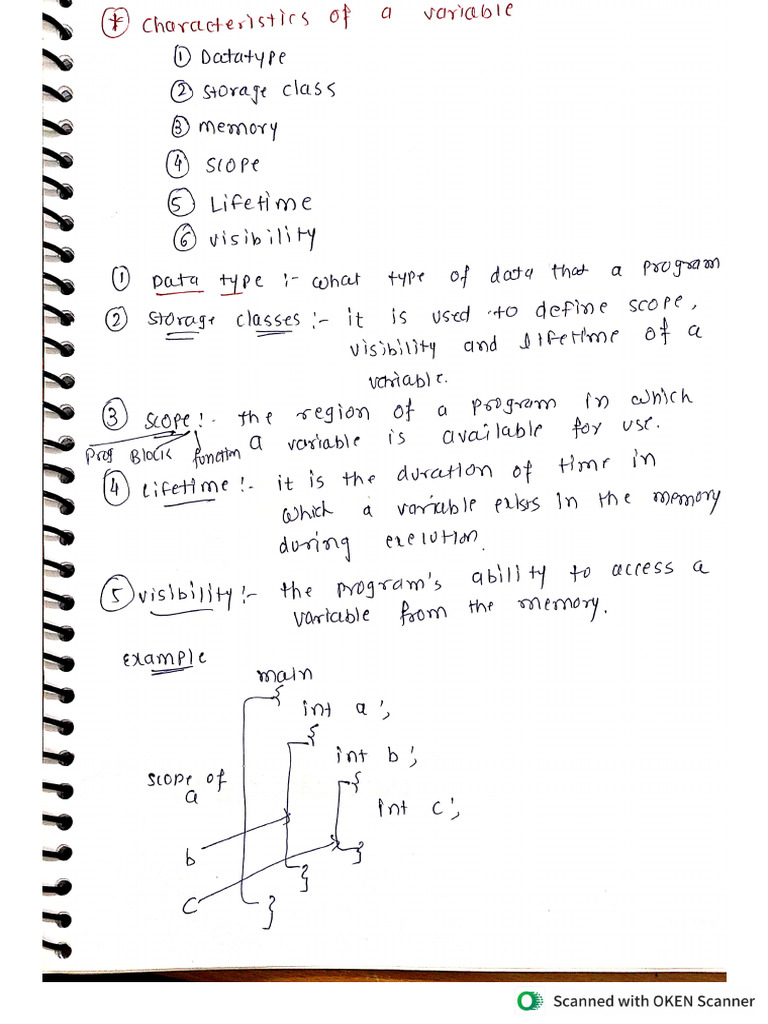 * Characteristics of a variable
① Datatype
② Storage class
③ memory
④ Scope
⑤ Lifetime
⑥ visibility
① Data type :- what type of data that a program
② Storage classes :- it is used to define scope,
visibility and lifetime of a
variable.
③ scope :- the region of a program in which
a variable is available for use.
Prog Block function
④ Lifetime :- it is the duration of time in
which a variable exists in the memory
during execution.
⑤ visibility :- the program's ability to access a
variable from the memory.
Example
main
{
int a;
{
int b;
{
scope of
a
int c;
}
b
}
c
}
Scanned with OKEN Scanner